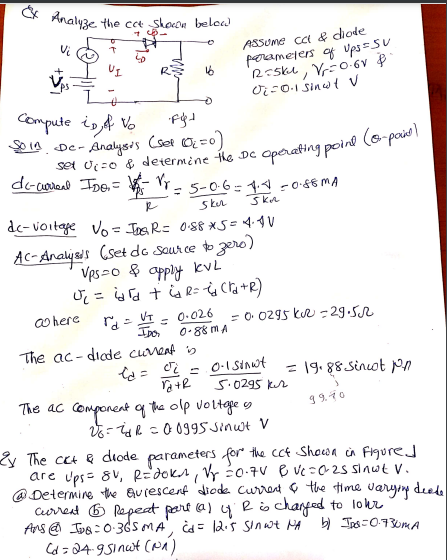 Ex Analyze the cct shown below
+ vD -
Vi + iD +
vI R vo
+ Vps - -
Assume cct & diode
parameters of Vps=5V
R=5kΩ, Vr=0.6V &
vi=0.1 sinωt V
Compute iD, & Vo Fig1
Soln. Dc-Analysis (set vi=0)
set vi=0 & determine the DC operating point (Q-point)
dc-current IDQ = Vps - Vr / R = 5-0.6 / 5kΩ = 4.4 / 5kΩ = 0.88 mA
dc-voltage Vo = IDQ R = 0.88 × 5 = 4.4V
AC-Analysis (set dc source to zero)
Vps=0 & apply KVL
vi = id rd + id R = id (rd+R)
where rd = VT / IDQ = 0.026 / 0.88 mA = 0.0295 kΩ = 29.5Ω
The ac-diode current is
id = vi / rd+R = 0.1 sinωt / 5.0295 kΩ = 19.88 sinωt μA
The ac component of the o/p voltage is
vo = id R = 0.0995 sinωt V
Ex The cct & diode parameters for the cct shown in Figure 1
are Vps= 8V, R=20kΩ, Vr=0.7V & vi=0.25 sinωt V.
(a) Determine the quiescent diode current & the time varying diode
current (b) Repeat part (a) if R is changed to 10kΩ
Ans (a) IDQ=0.365mA, id= 12.5 sinωt μA b) IDQ=0.730mA
id=24.9 sinωt (μA)